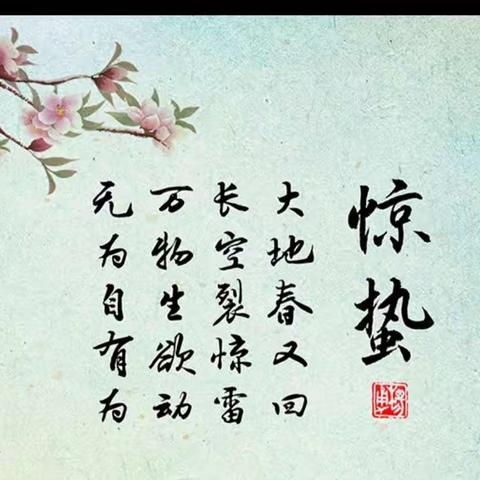 惊蛰
大地春又回
长空裂惊雷
万物生欲动
无为自有为